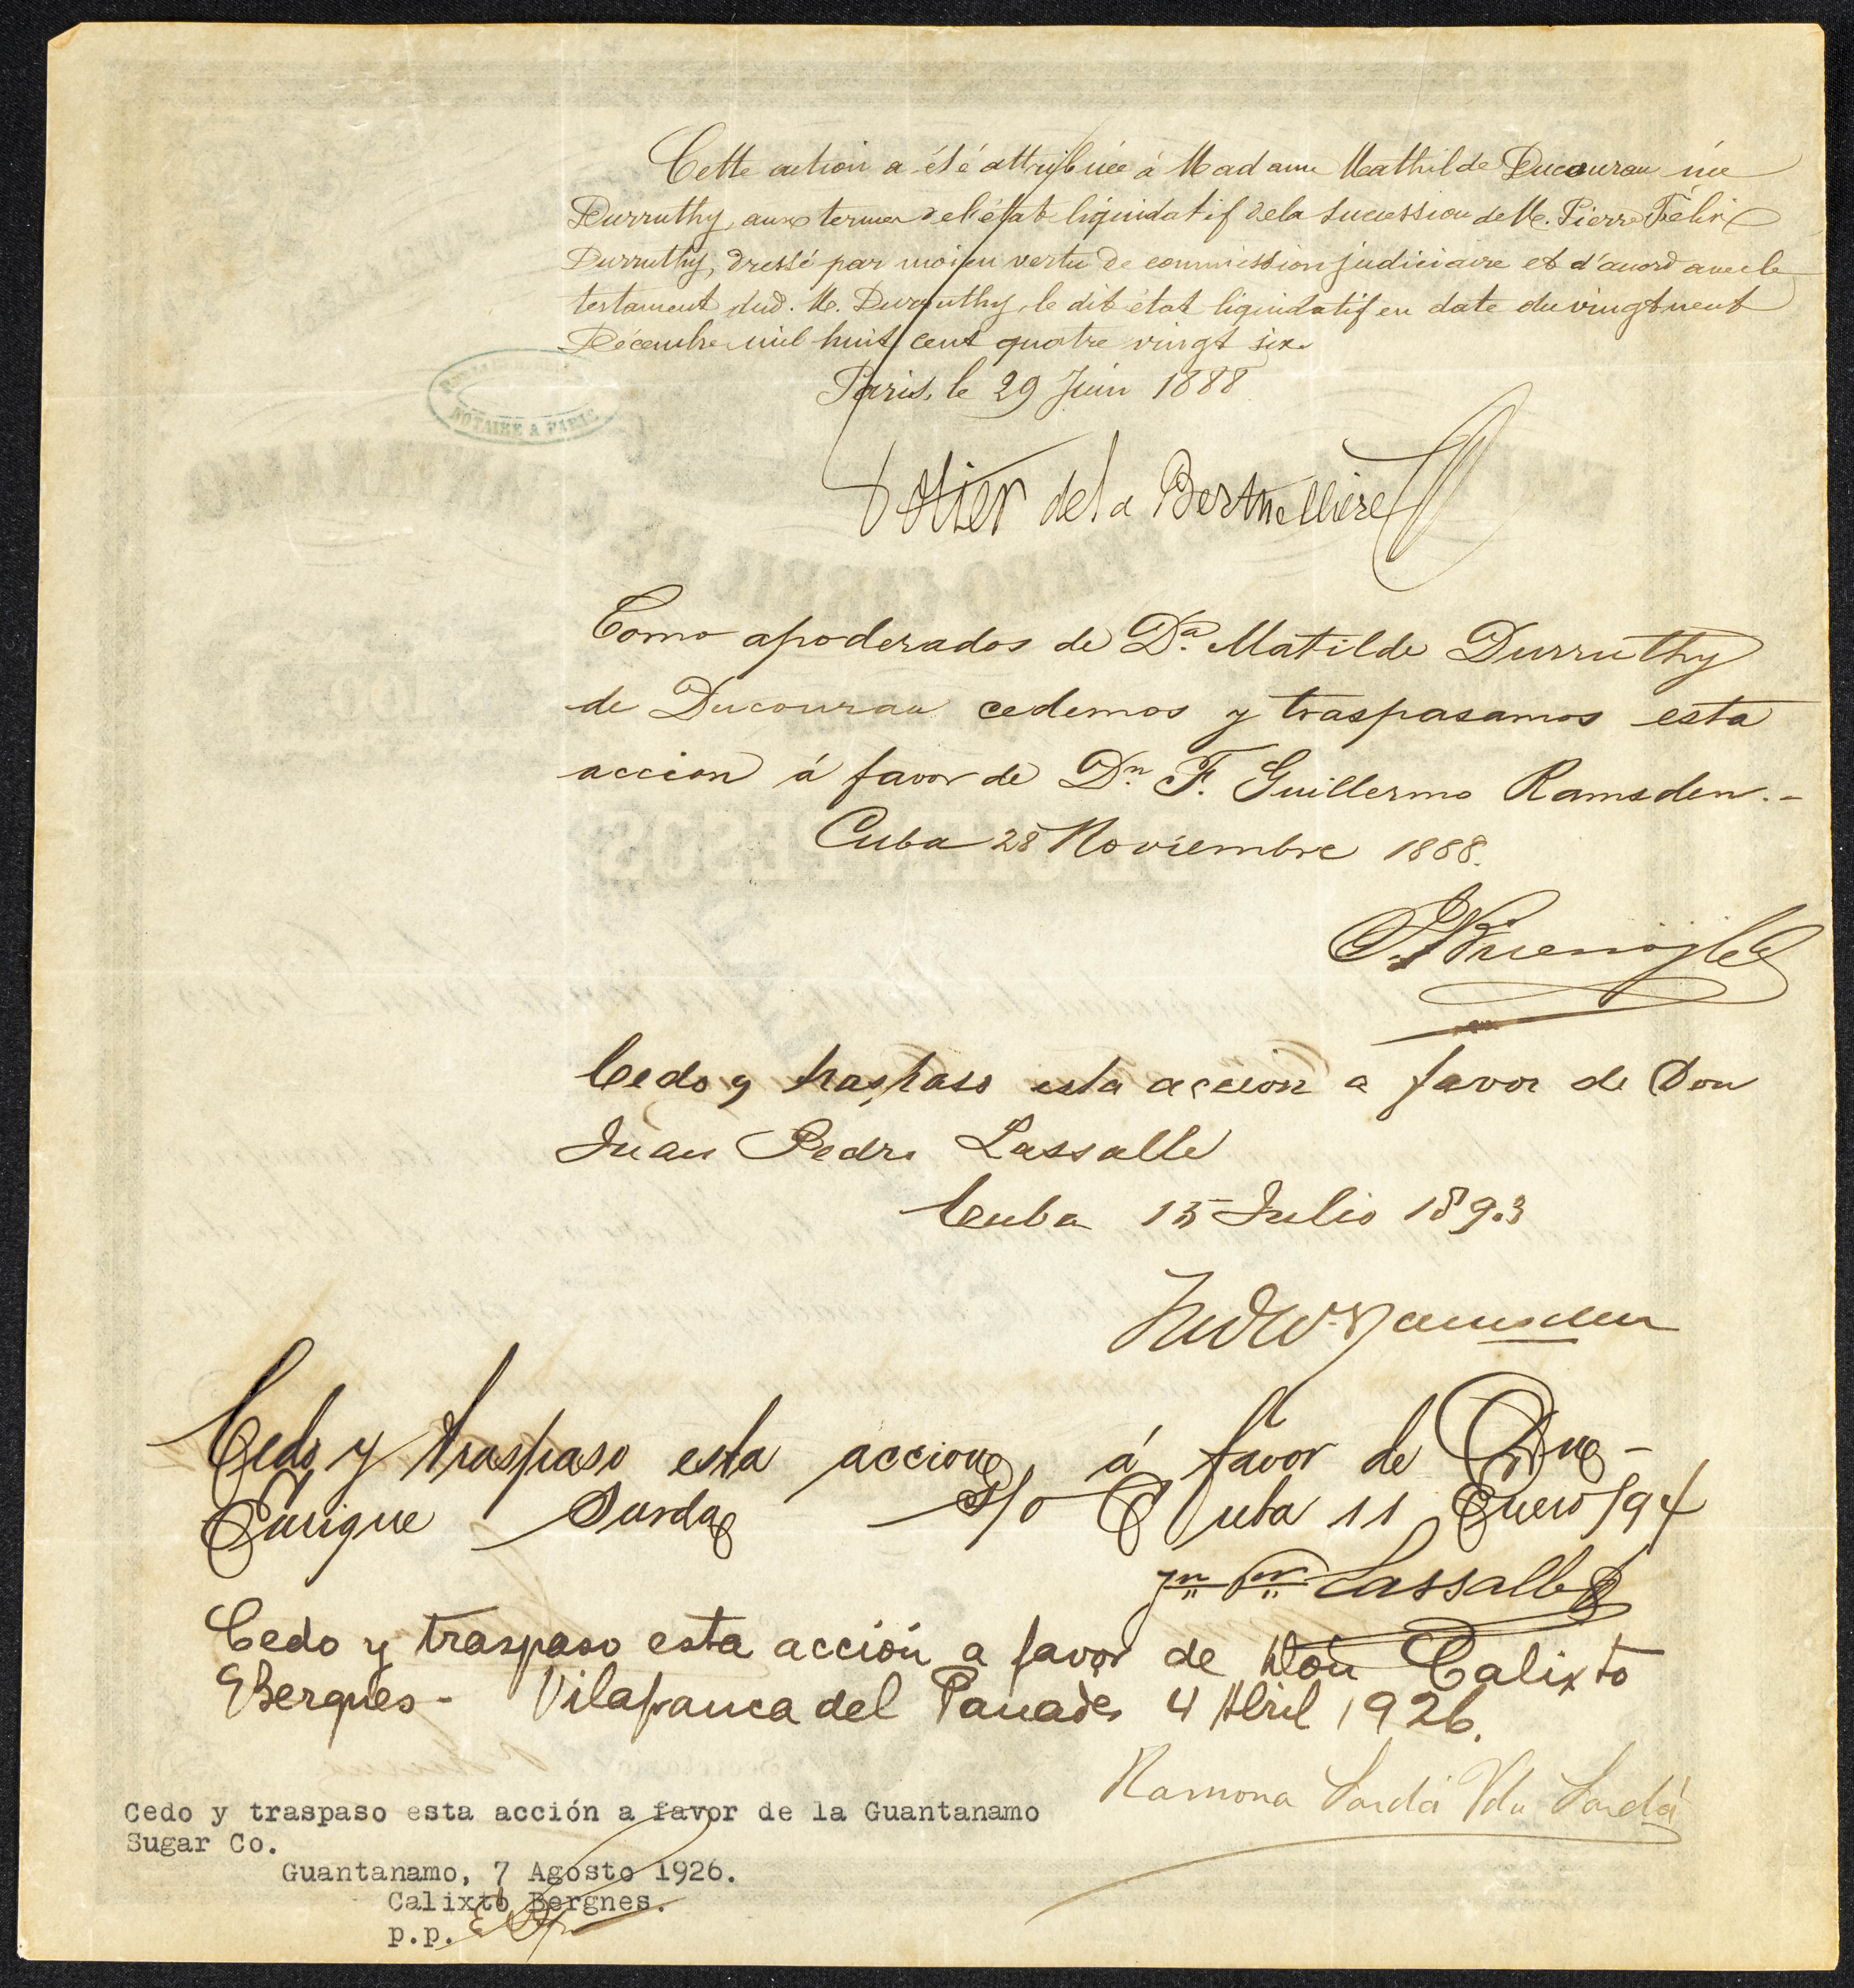 Cette action a été attribuée à Madame Mathilde Ducourau née
Durruthy, aux termes de l'état liquidatif de la succession de M. Pierre Félix
Durruthy, dressé par moi en vertu de commission judiciaire et d'accord avec le
testament dud. M. Durruthy, le dit état liquidatif en date du vingt neuf
Décembre mil huit cent quatre vingt six.
Paris, le 29 Juin 1888
NOTAIRE A PARIS
Potier de la Berthellière
Como apoderados de Dª. Matilde Durruthy
de Ducourau cedemos y traspasamos esta
accion á favor de Dn. F. Guillermo Ramsden.-
Cuba 28 Noviembre 1888.
Cedo y traspaso esta accion a favor de Don
Juan Pedro Lassalle
Cuba 15 Julio 1893
Fredk Wm Ramsden
Cedo y traspaso esta accion á favor de Dn -
Enrique Sarda S/o Cuba 11 Enero/94
Jn Pre Lassalle
Cedo y traspaso esta acción a favor de Don Calixto
Bergnes - Vilafranca del Panadés 4 Abril 1926.
Ramona Sardá Vda Sardá
Cedo y traspaso esta acción a favor de la Guantanamo
Sugar Co.
Guantanamo, 7 Agosto 1926.
Calixto Bergnes.
p.p.